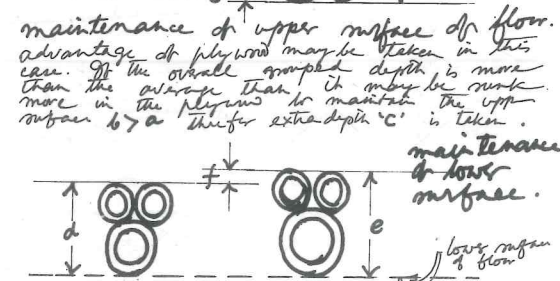 maintenance of upper surface of flow.
advantage of plywood may be taken in this
case. If the overall grouped depth is more
than the average than it may be sunk
more in the plywood to maintain the upp
surface b > a therfor extra depth 'c' is taken.
maintenance
of lower
surface.
f
d
e
lower surface
of flow